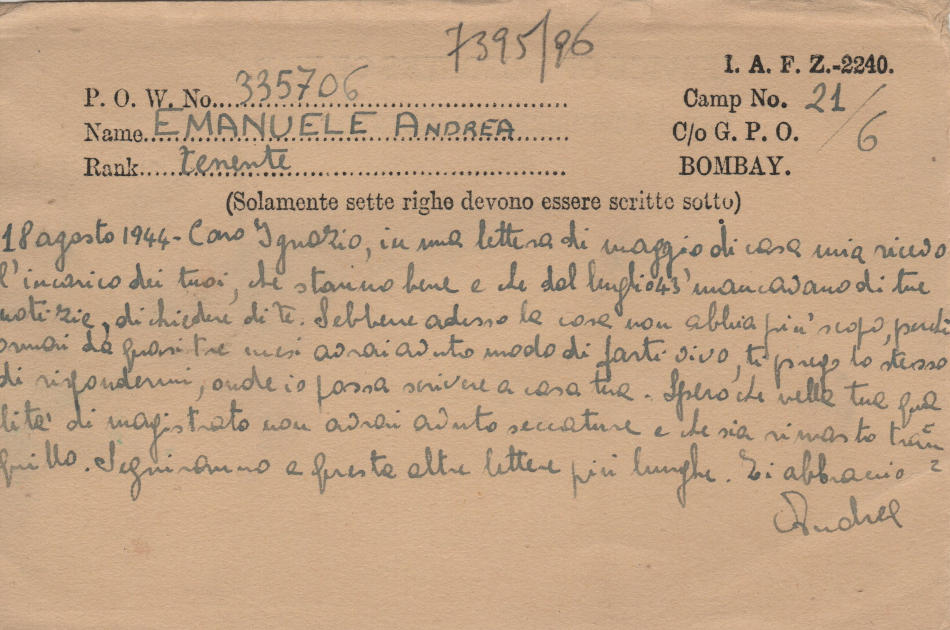 7395/96
I. A. F. Z.-2240.
P. O. W. No. 335706
Camp No. 21/6
Name EMANUELE ANDREA
C/o G. P. O.
Rank tenente
BOMBAY.
(Solamente sette righe devono essere scritte sotto)
18 agosto 1944 - Caro Ignazio, in una lettera di maggio di casa mia ricevo
l'incarico dei tuoi, che stanno bene e che dal luglio 43' mancavano di tue
notizie, di chiedere di te. Sebbene adesso la cosa non abbia più scopo, perché
ormai da quasi tre mesi avrai avuto modo di farti vivo, ti prego lo stesso
di rispondermi, onde io possa scrivere a casa tua. Spero che nella tua qua
lità di magistrato non avrai avuto seccature e che sia rimasto tran
quillo. Seguiranno a questa altre lettere più lunghe. Ti abbraccio
Andrea